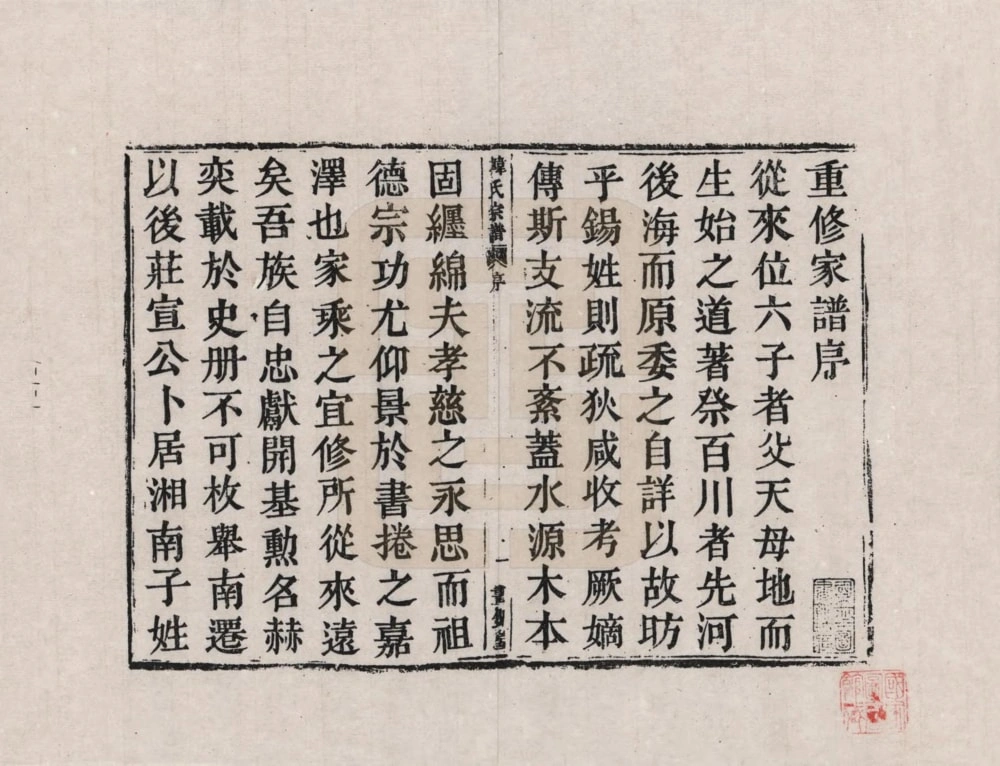 重修家譜序
從來位六子者父天母地而
生始之道著祭百川者先河
後海而原委之自詳以故昉
乎錫姓則疏狄咸收考厥嫡
傳斯支流不紊蓋水源木本
韓氏宗譜 序 一
固纏綿夫孝慈之永思而祖
德宗功尤仰景於書捲之嘉
澤也家乘之宜修所從來遠
矣吾族自忠獻開基勳名赫
奕載於史册不可枚舉南遷
以後莊宣公卜居湘南子姓